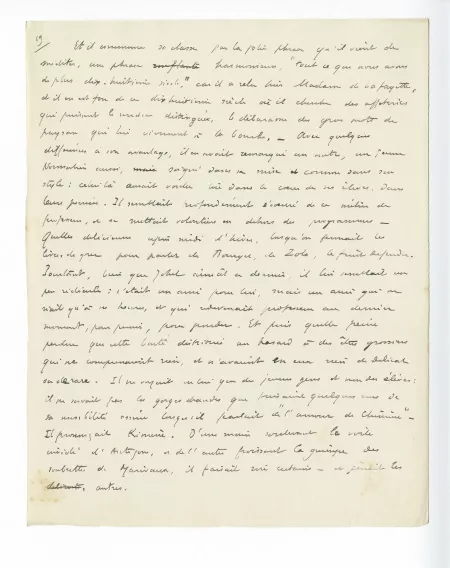 19
Et il commence sa classe par la jolie phrase qu'il vient de
méditer, une phrase harmonieuse, "Tout ce que nous avons
de plus dix-huitième siècle," car il a relu hier Madame de La Fayette,
et il en est fou de ce dix-huitième siècle où il cherche des afféteries
qui puissent le rendre distingué, le débarrasser des gros mots de
paysan qui lui viennent à la bouche. – Avec quelques
différences à son avantage, il en avait remarqué un autre, un jeune
Normalien aussi, mais soigné dans sa mise et comme dans son
style : celui-là aurait voulu lire dans le cœur de ses élèves, dans
leur pensée. Il semblait profondément écœuré de ce métier de
professeur, et se mettait volontiers en dehors du programme –
Quelles délicieuses après-midi d'hiver, lorsqu'on fermait les
livres de grec pour parler de Bourget, de Zola, le fruit défendu.
Pourtant, bien que Johel aimât ce dernier, il lui semblait un
peu ridicule : c'était un ami pour lui, mais un ami qui ne
riait qu'à ses heures, et qui redevenait professeur au dernier
moment, pour punir, pour gronder. Et puis quelle peine
perdue que cette bonté distribuée au hasard à des êtres grossiers
qui ne comprenaient rien, et n'avaient en eux rien de délicat
ou de rare. Il ne voyait en lui que des jeunes gens et non des élèves :
il ne savait pas les gorges chaudes que faisaient quelques-uns de
sa sensibilité lorsqu'il parlait de "l'amour de Chimène" –
Il prononçait Kimène. D'une main soulevant le voile
d'Antigone, et de l'autre froissant la guimpe des
soubrettes de Marivaux, il faisait rire certains – et gémir les
autres.